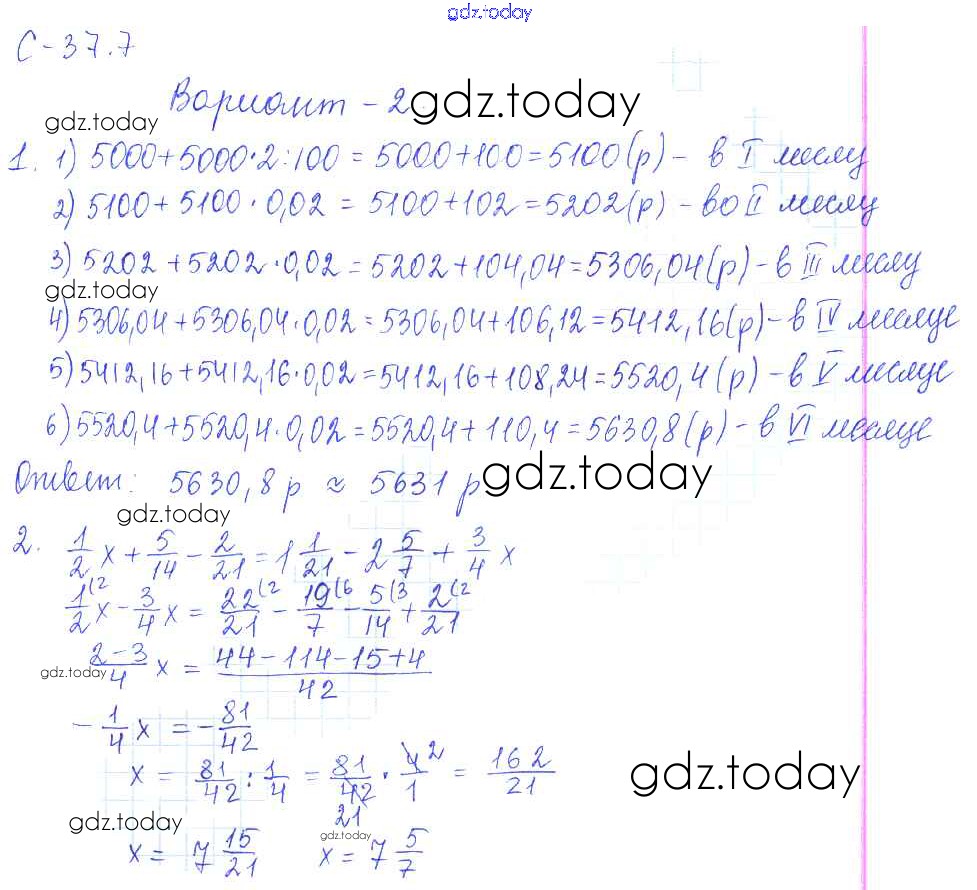 gdz.today
С-37.7
Вариант - 2 gdz.today
gdz.today
1. 1) 5000+5000·2:100 = 5000+100=5100(р) - в I месяц
2) 5100+5100·0,02 = 5100+102=5202(р) - во II месяц
3) 5202+5202·0,02=5202+104,04=5306,04(р) - в III месяц
gdz.today
4) 5306,04+5306,04·0,02=5306,04+106,12=5412,16(р) - в IV месяце
5) 5412,16+5412,16·0,02=5412,16+108,24=5520,4(р) - в V месяце
6) 5520,4+5520,4·0,02=5520,4+110,4=5630,8(р) - в VI месяце
Ответ: 5630,8 р ≈ 5631 р gdz.today
gdz.today
2. 1/2 x + 5/14 - 2/21 = 1 1/21 - 2 5/7 + 3/4 x
1(2/2 x - 3/4 x = 22(2/21 - 19(6/7 - 5(3/14 + 2(2/21
gdz.today 2-3/4 x = 44-114-15+4/42
-1/4 x = -81/42
x = 81/42 : 1/4 = 81/42 21 · 4 2/1 = 162/21 gdz.today
gdz.today
gdz.today
x = 7 15/21 x = 7 5/7